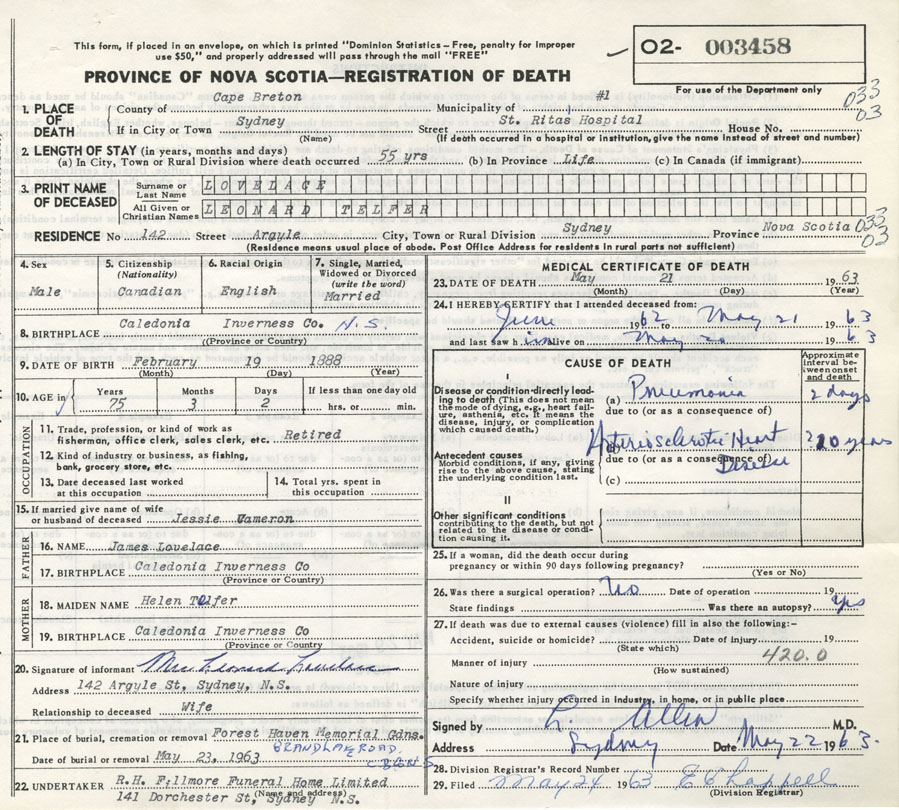 This form, if placed in an envelope, on which is printed "Dominion Statistics – Free, penalty for improper
use $50," and properly addressed will pass through the mail "FREE"
O2- 003458
PROVINCE OF NOVA SCOTIA—REGISTRATION OF DEATH
For use of the Department only
033
03
1. PLACE OF DEATH
County of Cape Breton Municipality of #1
If in City or Town Sydney Street St. Ritas Hospital House No.
(Name) (If death occurred in a hospital or institution, give the name instead of street and number)
2. LENGTH OF STAY (in years, months and days)
(a) In City, Town or Rural Division where death occurred 55 yrs (b) In Province Life (c) In Canada (if immigrant)
3. PRINT NAME OF DECEASED
Surname or Last Name LOVELACE
All Given or Christian Names LEONARD TELFER
RESIDENCE No 142 Street Argyle City, Town or Rural Division Sydney Province Nova Scotia
033
03
(Residence means usual place of abode. Post Office Address for residents in rural parts not sufficient)
4. Sex
Male
5. Citizenship (Nationality)
Canadian
6. Racial Origin
English
7. Single, Married, Widowed or Divorced (write the word)
Married
8. BIRTHPLACE Caledonia Inverness Co. N.S.
(Province or Country)
9. DATE OF BIRTH February 19 1888
(Month) (Day) (Year)
10. AGE in
Years Months Days If less than one day old
75 3 2 hrs. or min.
OCCUPATION
11. Trade, profession or kind of work as
fisherman, office clerk, sales clerk, etc. Retired
12. Kind of industry or business, as fishing,
bank, grocery store, etc.
13. Date deceased last worked
at this occupation
14. Total yrs. spent in
this occupation
15. If married give name of wife
or husband of deceased Jessie Cameron
FATHER
16. NAME James Lovelace
17. BIRTHPLACE Caledonia Inverness Co
(Province or Country)
MOTHER
18. MAIDEN NAME Helen Telfer
19. BIRTHPLACE Caledonia Inverness Co
(Province or Country
20. Signature of informant Mrs Leonard Lovelace
Address 142 Argyle St, Sydney, N.S.
Relationship to deceased Wife
21. Place of burial, cremation or removal Forest Haven Memorial Gdns.
Date of burial or removal May 23, 1963
22. UNDERTAKER R.H. Fillmore Funeral Home Limited
(Name and address)
141 Dorchester St, Sydney N.S.
MEDICAL CERTIFICATE OF DEATH
23. DATE OF DEATH May 21 1963
(Month) (Day) (Year)
24. I HEREBY CERTIFY that I attended deceased from:
June 1962 to May 21 1963
and last saw him alive on May 20 1963
CAUSE OF DEATH
Approximate interval between onset and death
I
Disease or condition directly leading to death (This does not mean the mode of dying, e.g., heart failure, asthenia, etc. It means the disease, injury, or complication which caused death.)
(a) Pneumonia 2 days
due to (or as a consequence of)
Antecedent causes
Morbid conditions, if any, giving rise to the above cause, stating the underlying condition last.
(b) Arteriosclerotic Heart Disease ? 10 years
due to (or as a consequence of)
(c)
II
Other significant conditions
contributing to the death, but not related to the disease or condition causing it.
25. If a woman, did the death occur during
pregnancy or within 90 days following pregnancy?
(Yes or No)
26. Was there a surgical operation? No Date of operation 19
State findings Was there an autopsy? yes
27. If death was due to external causes (violence) fill in also the following:–
Accident, suicide or homicide? Date of injury 19
(State which)
420.0
Manner of injury
(How sustained)
Nature of injury
Specify whether injury occurred in industry, in home, or in public place
Signed by L. Allen M.D.
Address Sydney Date May 22 1963.
28. Division Registrar's Record Number
29. Filed May 24 1963 E C Chappell
(Division Registrar)